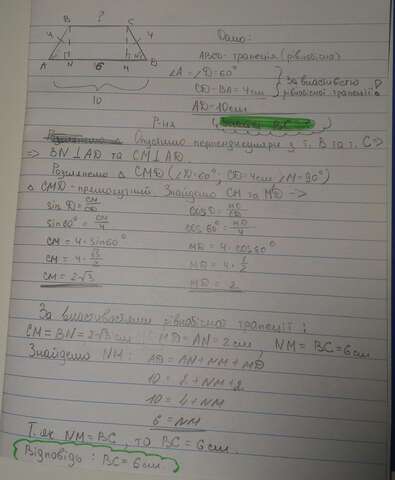 ?
B C
4 4
A N 6 M D
10
Дано:
ABCD - трапеція (рівнобісна)
∠A = ∠D = 60°
CD = BA = 4см
За властивістю рівнобісної трапеції
AD = 10см
BC
Р-ня
Опустимо перпендикуляри з т. B та т. C =>
=> BN ⊥ AD та CM ⊥ AD.
Розглянемо Δ CMD (∠D=60°; CD=4см; ∠M=90°)
Δ CMD - прямокутний. Знайдемо CM та MD =>
sin D = CM/CD cos D = MD/CD
sin 60° = CM/4 cos 60° = MD/4
CM = 4 · sin 60° MD = 4 · cos 60°
CM = 4 · √3/2 MD = 4 · 1/2
CM = 2√3 MD = 2
За властивостями рівнобісної трапеції:
CM = BN = 2√3 см MD = AN = 2 см, NM = BC = 6 см
Знайдемо NM: AD = AN + NM + MD
10 = 2 + NM + 2
10 = 4 + NM
6 = NM
Т. як NM = BC, то BC = 6 см.
Відповідь: BC = 6 см.